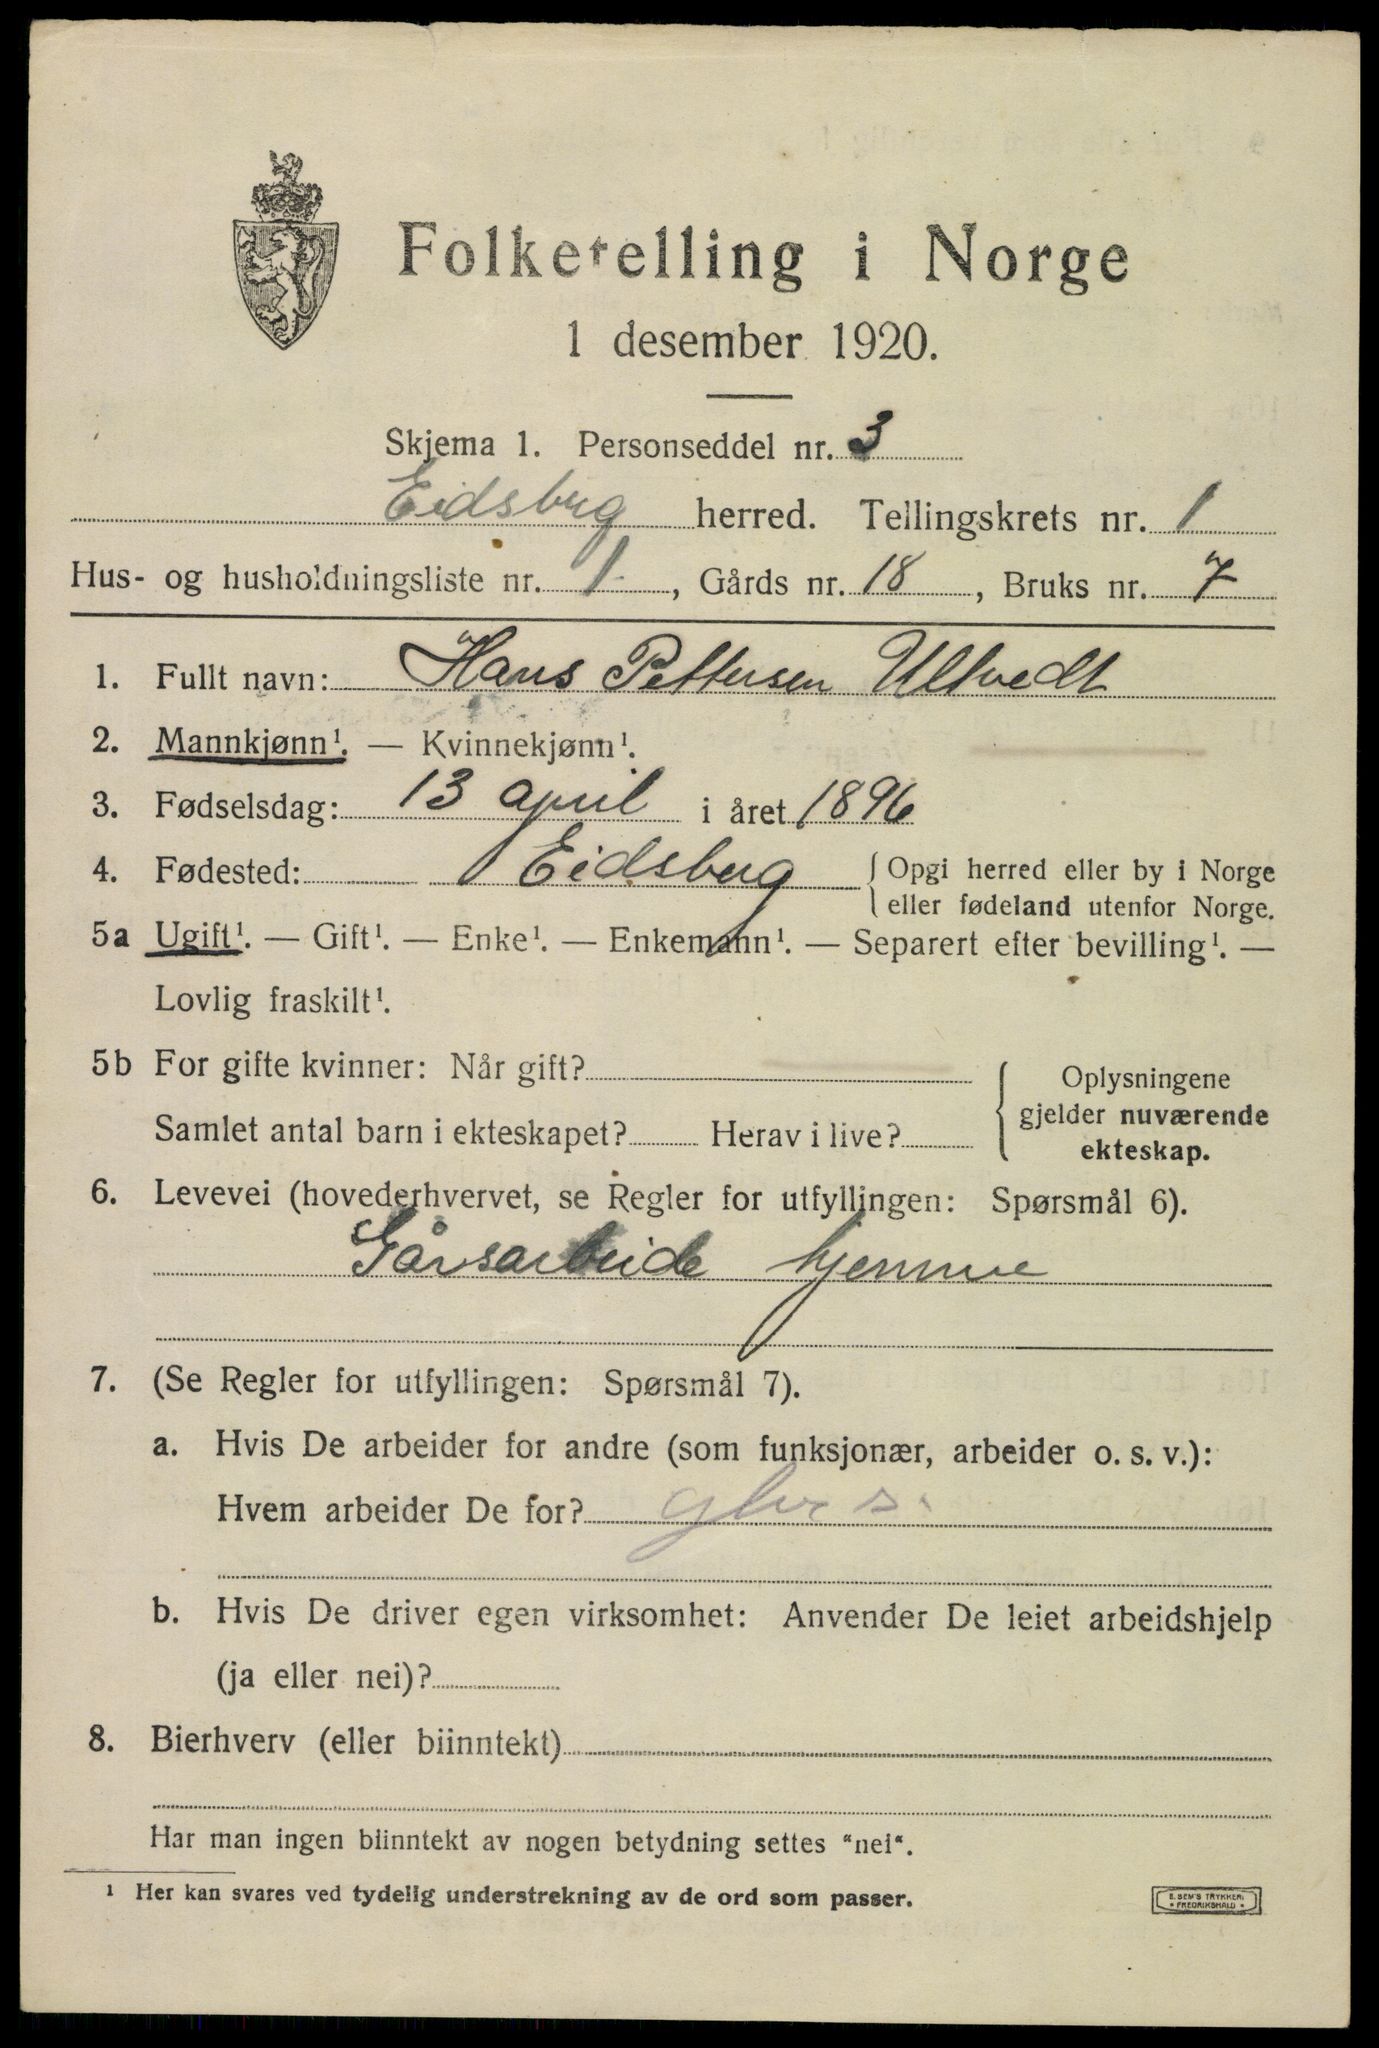 Folketelling i Norge
1 desember 1920.
Skjema 1. Personseddel nr. 3
Eidsberg herred. Tellingskrets nr. 1
Hus- og husholdningsliste nr. 1, Gårds nr. 18, Bruks nr. 7
1. Fullt navn: Hans Pettersen Ultvedt
2. Mannkjønn¹. — Kvinnekjønn¹.
3. Fødselsdag: 13 april i året 1896
4. Fødested: Eidsberg { Opgi herred eller by i Norge
eller fødeland utenfor Norge.
5a Ugift¹. — Gift¹. — Enke¹. — Enkemann¹. — Separert efter bevilling¹. —
Lovlig fraskilt¹.
5b For gifte kvinner: Når gift?
Samlet antal barn i ekteskapet? Herav i live?
{ Oplysningene
gjelder nuværende
ekteskap.
6. Levevei (hovederhvervet, se Regler for utfyllingen: Spørsmål 6).
Gårsarbeide hjemme
7. (Se Regler for utfyllingen: Spørsmål 7).
a. Hvis De arbeider for andre (som funksjonær, arbeider o. s. v.):
Hvem arbeider De for?
b. Hvis De driver egen virksomhet: Anvender De leiet arbeidshjelp
(ja eller nei)?
8. Bierhverv (eller biinntekt)
Har man ingen biinntekt av nogen betydning settes "nei".
¹ Her kan svares ved tydelig understrekning av de ord som passer.
E. SEM'S TRYKKERI
* FREDRIKSHALD *